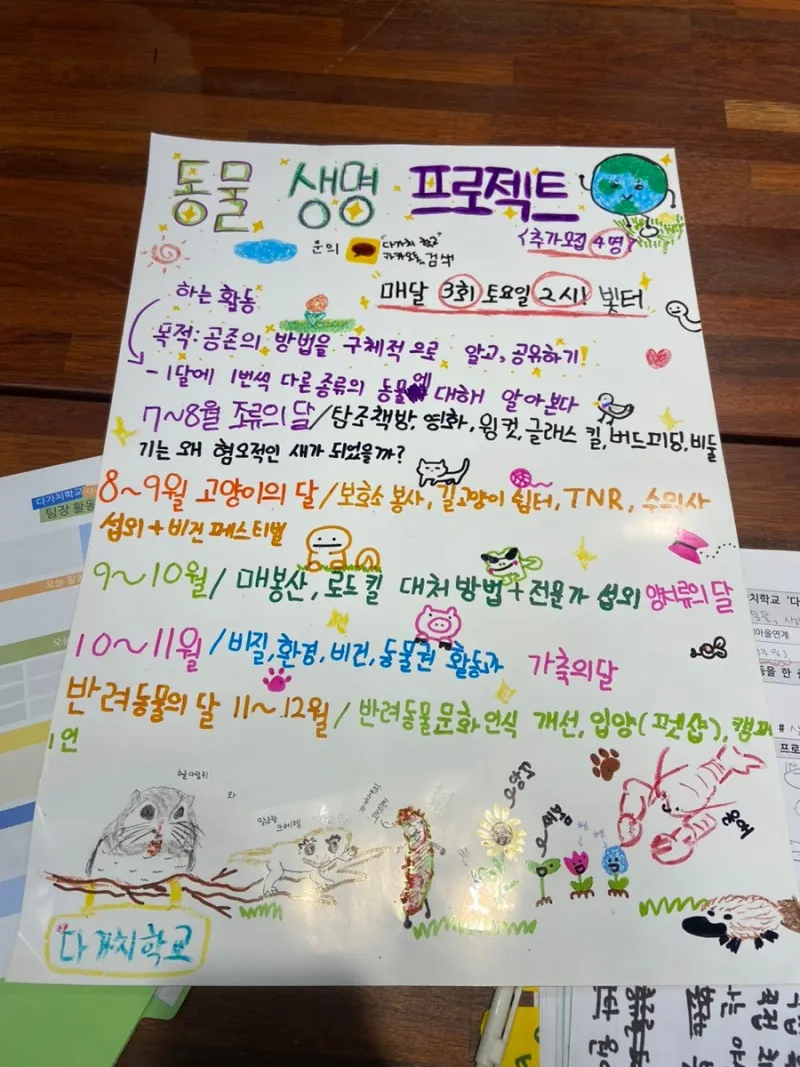 동물 생명 프로젝트
<추가모집 4명>
문의 "다가치 학교" 카카오톡 검색
하는 활동
매달 3회 토요일 2시! 빛터
목적: 공존의 방법을 구체적으로 알고, 공유하기!
- 1달에 1번씩 다른 종류의 동물에 대해 알아본다
7~8월 조류의 달/탐조책방, 영화, 윙컷, 글래스 킬, 버드피딩, 비둘
기는 왜 혐오적인 새가 되었을까?
8~9월 고양이의 달/보호소 봉사, 길고양이 쉼터, TNR, 수의사
섭외 + 비건 페스티벌
9~10월/ 매봉산, 로드킬 대처방법 + 전문가 섭외 양서류의 달
10~11월/비질, 환경, 비건, 동물권 활동가 가축의 달
반려동물의 달 11~12월/ 반려동물문화 인식 개선, 입양(펫샵), 캠페
인
하늘다람쥐
와
새봄
다가치학교
다가치학교
팀장 활동